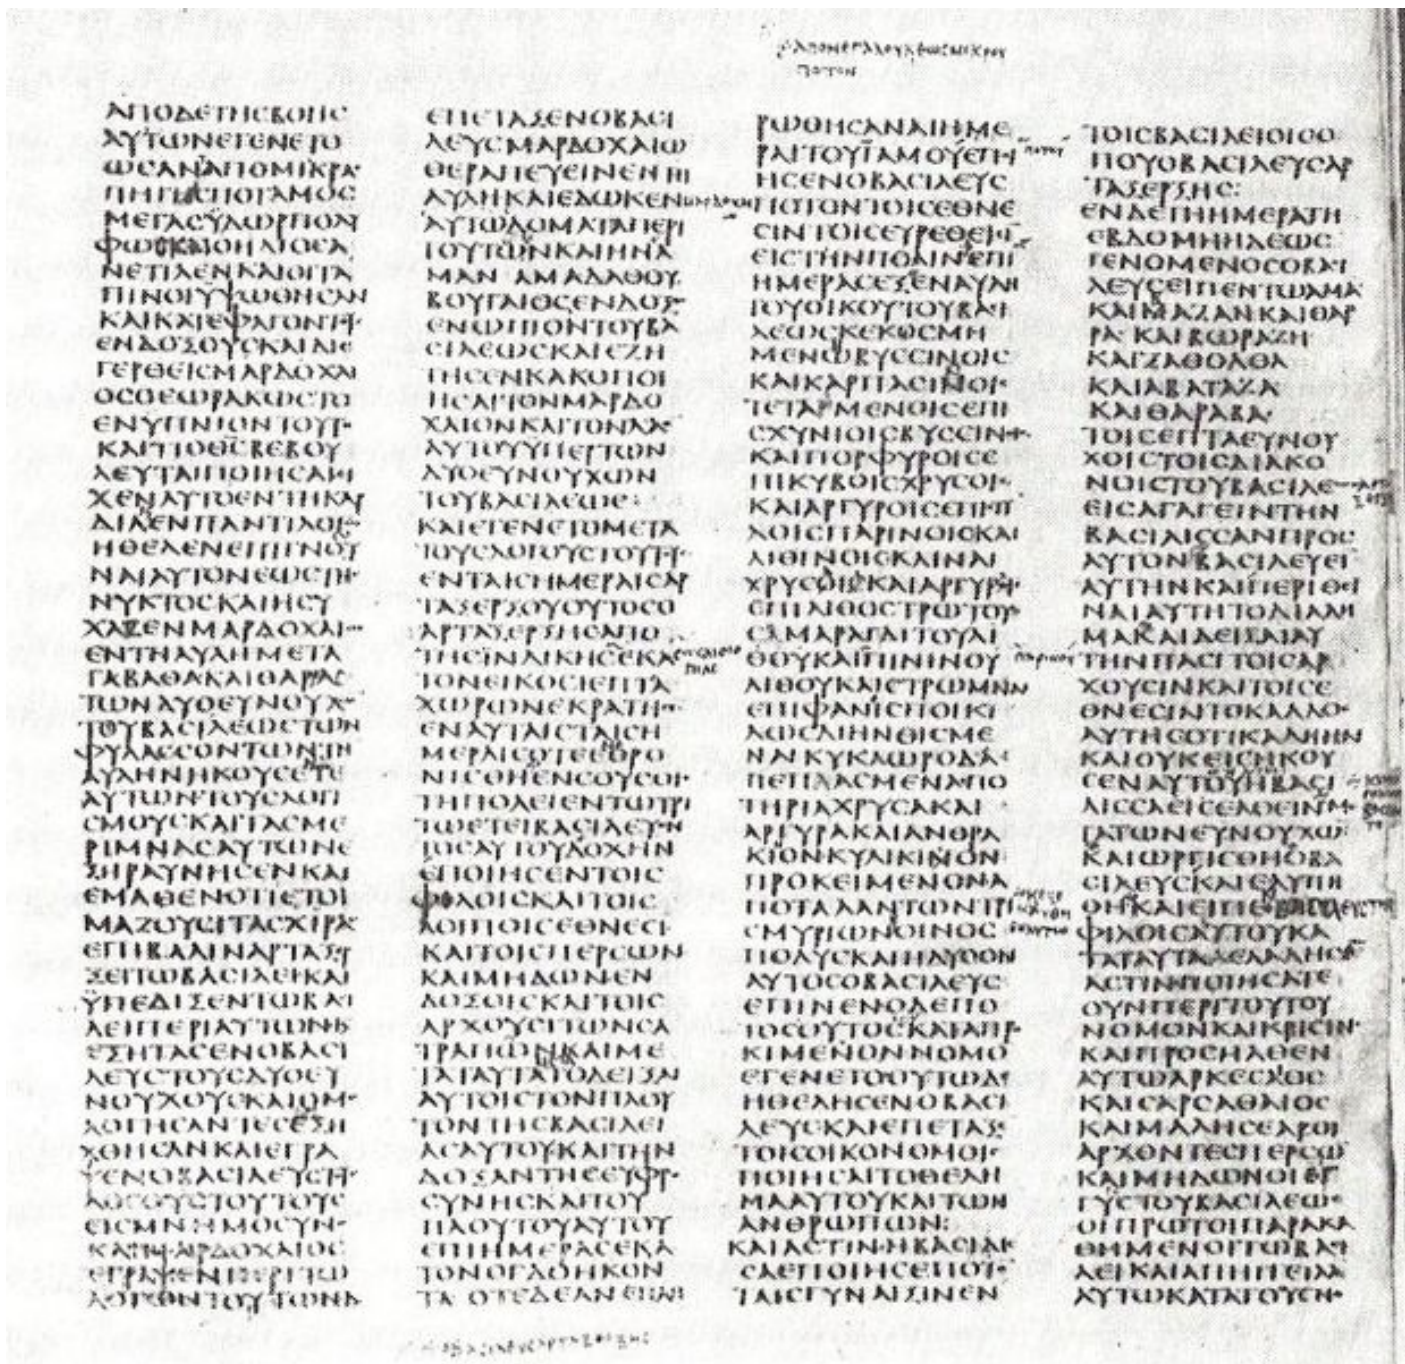 ΑΠΟΔΕΤΗϹΒΟΗϹ
ΑΥΤΩΝΕΓΕΝΕΤΟ
ΩϹΑΝΑΠΟΜΙΚΡΑ
ΠΗΓΗϹΠΟΤΑΜΟϹ
ΜΕΓΑϹΥΔΩΡΠΟΛΥ
ΦΩϹΚΑΙΟΗΛΙΟϹΑ
ΝΕΤΙΛΕΝΚΑΙΟΙΤΑ
ΠΙΝΟΙΥΨΩΘΗϹΑΝ
ΚΑΙΚΑΤΕΦΑΓΟΝΤΥ
ΕΝΔΟΞΟΥϹΚΑΙΔΙΕ
ΓΕΡΘΕΙϹΜΑΡΔΟΧΑΙ
ΟϹΟΕΩΡΑΚΩϹΤΟ
ΕΝΥΠΝΙΟΝΤΟΥΤ
ΚΑΙΤΙΟΘϹΒΕΒΟΥ
ΛΕΥΤΑΙΠΟΙΗϹΑΙ
ΧΕΝΑΥΤΟΕΝΤΗΚΑΡ
ΔΙΑΕΝΠΑΝΤΙΛΟΓ
ΗΘΕΛΕΝΕΠΙΓΝΟΥ
ΝΑΙΑΥΤΟΝΕΩϹΤΗ
ΝΥΚΤΟϹΚΑΙΗϹΥ
ΧΑΣΕΝΜΑΡΔΟΧΑΙ
ΕΝΤΗΑΥΛΗΜΕΤΑ
ΓΑΒΑΘΑΚΑΙΘΑΡΡΑϹ
ΤΩΝΔΥΟΕΥΝΟΥΧ
ΤΟΥΒΑϹΙΛΕΩϹΤΩΝ
ΦΥΛΑϹϹΟΝΤΩΝΤΗ
ΑΥΛΗΝΗΚΟΥϹΕΤΕ
ΑΥΤΩΝΤΟΥϹΛΟΓΙ
ϹΜΟΥϹΚΑΙΤΑϹΜΕ
ΡΙΜΝΑϹΑΥΤΩΝΕ
ΞΗΡΑΥΝΗϹΕΝΚΑΙ
ΕΜΑΘΕΝΟΤΙΕΤΟΙ
ΜΑΖΟΥϹΙΤΑϹΧΙΡΑ
ΕΠΙΒΑΛΙΝΑΡΤΑΞΕΡ
ΞΕΙΤΩΒΑϹΙΛΕΙΚΑΙ
ΫΠΕΔΙΞΕΝΤΩΒΑΙ
ΛΕΙΠΕΡΙΑΥΤΩΝΚ
ΕΞΗΤΑϹΕΝΟΒΑϹΙ
ΛΕΥϹΤΟΥϹΔΥΟΕΥ
ΝΟΥΧΟΥϹΚΑΙΟΜ
ΛΟΓΗϹΑΝΤΕϹΕΞΗ
ΧΘΗϹΑΝΚΑΙΕΓΡΑ
ΨΕΝΟΒΑϹΙΛΕΥϹΤ
ΛΟΓΟΥϹΤΟΥΤΟΥϹ
ΕΙϹΜΝΗΜΟϹΥΝ
ΚΑΙΜΑΡΔΟΧΑΙΟϹ
ΕΓΡΑΨΕΝΠΕΡΙΤΩ
ΛΟΓΩΝΤΟΥΤΩΝΚ
ΕΠΕΤΑΞΕΝΟΒΑϹΙ
ΛΕΥϹΜΑΡΔΟΧΑΙΩ
ΘΕΡΑΠΕΥΕΙΝΕΝΤΗ
ΑΥΛΗΚΑΙΕΔΩΚΕΝ
ΑΥΤΩΔΟΜΑΤΑΠΕΡΙ
ΤΟΥΤΩΝΚΑΙΗΝΑ
ΜΑΝΑΜΑΔΑΘΟΥ
ΒΟΥΓΑΙΟϹΕΝΔΟΞ
ΕΝΩΠΙΟΝΤΟΥΒΑ
ϹΙΛΕΩϹΚΑΙΕΖΗ
ΤΗϹΕΝΚΑΚΟΠΟΙ
ΗϹΑΙΤΟΝΜΑΡΔΟ
ΧΑΙΟΝΚΑΙΤΟΝΛΑ
ΑΥΤΟΥΥΠΕΡΤΩΝ
ΔΥΟΕΥΝΟΥΧΩΝ
ΤΟΥΒΑϹΙΛΕΩϹ:
ΚΑΙΕΓΕΝΕΤΟΜΕΤΑ
ΤΟΥϹΛΟΓΟΥϹΤΟΥΤ
ΕΝΤΑΙϹΗΜΕΡΑΙϹΑΡ
ΤΑΞΕΡΞΟΥΟΥΤΟϹΟ
ΑΡΤΑΞΕΡΞΗϹΑΠΟ
ΤΗϹΪΝΔΙΚΗϹΕΚΑ
ΤΟΝΕΙΚΟϹΙΕΠΤΑ
ΧΩΡΩΝΕΚΡΑΤΗ
ΕΝΑΥΤΑΙϹΤΑΙϹΗ
ΜΕΡΑΙϹΟΤΕΕΘΡΟ
ΝΙϹΘΗΕΝϹΟΥϹΟΙ
ΤΗΠΟΛΕΙΕΝΤΩΤΡΙ
ΤΩΕΤΕΙΒΑϹΙΛΕΥΝ
ΤΟϹΑΥΤΟΥΔΟΧΗΝ
ΕΠΟΙΗϹΕΝΤΟΙϹ
ΦΙΛΟΙϹΚΑΙΤΟΙϹ
ΛΟΙΠΟΙϹΕΘΝΕϹΙ
ΚΑΙΤΟΙϹΠΕΡϹΩΝ
ΚΑΙΜΗΔΩΝΕΝ
ΔΟΞΟΙϹΚΑΙΤΟΙϹ
ΑΡΧΟΥϹΙΤΩΝϹΑ
ΤΡΑΠΩΝΚΑΙΜΕ
ΤΑΤΑΥΤΑΤΟΔΕΙΞΑΙ
ΑΥΤΟΙϹΤΟΝΠΛΟΥ
ΤΟΝΤΗϹΒΑϹΙΛΕΙ
ΑϹΑΥΤΟΥΚΑΙΤΗΝ
ΔΟΞΑΝΤΗϹΕΥΦΡ
ϹΥΝΗϹΚΑΙΤΟΥ
ΠΛΟΥΤΟΥΑΥΤΟΥ
ΕΠΙΗΜΕΡΑϹΕΚΑ
ΤΟΝΟΓΔΟΗΚΟΝ
ΤΑΟΤΕΔΕΑΝΕΠΛΗ
ΡΩΘΗϹΑΝΑΙΗΜΕ
ΡΑΙΤΟΥΓΑΜΟΥΕΠΗ
ΗϹΕΝΟΒΑϹΙΛΕΥϹ
ΠΟΤΟΝΤΟΙϹΕΘΝΕ
ϹΙΝΤΟΙϹΕΥΡΕΘΕΙϹΙ
ΕΙϹΤΗΝΠΟΛΙΝΕΠΙ
ΗΜΕΡΑϹΕΞΕΝΑΥΛΗ
ΤΟΥΟΙΚΟΥΤΟΥΒΑΙ
ΛΕΩϹΚΕΚΟϹΜΗ
ΜΕΝΩΒΥϹϹΙΝΟΙϹ
ΚΑΙΚΑΡΠΑϹΙΝΟΙ
ΤΕΤΑΜΕΝΟΙϹΕΠΙ
ϹΧΥΝΙΟΙϹΒΥϹϹΙΝ
ΚΑΙΠΟΡΦΥΡΟΙϹΕ
ΠΙΚΥΒΟΙϹΧΡΥϹΟΙ
ΚΑΙΑΡΓΥΡΟΙϹΕΠΙϹΤ
ΛΟΙϹΠΑΡΙΝΟΙϹΚΑΙ
ΛΙΘΙΝΟΙϹΚΛΙΝΑΙ
ΧΡΥϹΑΙΚΑΙΑΡΓΥΡΑΙ
ΕΠΙΛΙΘΟϹΤΡΩΤΟΥ
ϹΜΑΡΑΓΔΙΤΟΥΛΙ
ΘΟΥΚΑΙΠΙΝΙΝΟΥ
ΛΙΘΟΥΚΑΙϹΤΡΩΜΝΗ
ΕΠΙΦΑΝΙϹΠΟΙΚΙ
ΛΩϹΔΙΗΝΘΙϹΜΕ
ΝΑΙΚΥΚΛΩΡΟΔΑ
ΠΕΠΛΑϹΜΕΝΑΠΟ
ΤΗΡΙΑΧΡΥϹΑΚΑΙ
ΑΡΓΥΡΑΚΑΙΑΝΘΡΑ
ΚΙΟΝΚΥΛΙΚΙΝΟΝ
ΠΡΟΚΕΙΜΕΝΟΝΑ
ΠΟΤΑΛΑΝΤΩΝΤΡΙ
ϹΜΥΡΙΩΝΟΙΝΟϹ
ΠΟΛΥϹΚΑΙΗΔΥϹΟΝ
ΑΥΤΟϹΟΒΑϹΙΛΕΥϹ
ΕΠΙΝΕΝΟΔΕΠΟ
ΤΟϹΟΥΤΟϹΚΑΤΑΠΡ
ΚΙΜΕΝΟΝΝΟΜΟ
ΕΓΕΝΕΤΟΟΥΤΩΔΕ
ΗΘΕΛΗϹΕΝΟΒΑϹΙ
ΛΕΥϹΚΑΙΕΠΕΤΑΞ
ΤΟΙϹΟΙΚΟΝΟΜΟΙ
ΠΟΙΗϹΑΙΤΟΘΕΛΗ
ΜΑΑΥΤΟΥΚΑΙΤΩΝ
ΑΝΘΡΩΠΩΝ:
ΚΑΙΑϹΤΙΝΗΒΑϹΙΛΙϹ
ϹΑΕΠΟΙΗϹΕΠΟΤ
ΤΑΙϹΓΥΝΑΙΞΙΝΕΝ
ΤΟΙϹΒΑϹΙΛΕΙΟΙϹΟ
ΠΟΥΟΒΑϹΙΛΕΥϹΑΡ
ΤΑΞΕΡΞΗϹ:
ΕΝΔΕΤΗΗΜΕΡΑΤΗ
ΕΒΔΟΜΗΗΔΕΩϹ
ΓΕΝΟΜΕΝΟϹΟΒΑΙ
ΛΕΥϹΕΙΠΕΝΤΩΑΜΑ
ΚΑΙΜΑΖΑΝΚΑΙΘΑΡ
ΡΑΚΑΙΒΩΡΑΖΗ
ΚΑΙΖΑΘΟΛΘΑ
ΚΑΙΑΒΑΤΑΖΑ
ΚΑΙΘΑΡΑΒΑ
ΤΟΙϹΕΠΤΑΕΥΝΟΥ
ΧΟΙϹΤΟΙϹΔΙΑΚΟ
ΝΟΙϹΤΟΥΒΑϹΙΛΕ
ΕΙϹΑΓΑΓΕΙΝΤΗΝ
ΒΑϹΙΛΙϹϹΑΝΠΡΟϹ
ΑΥΤΟΝΒΑϹΙΛΕΥΕΙ
ΑΥΤΗΝΚΑΙΠΕΡΙΘΕΙ
ΝΑΙΑΥΤΗΤΟΔΙΑΔΗ
ΜΑΚΑΙΔΕΙΞΑΙΑΥ
ΤΗΝΠΑϹΙΤΟΙϹΑΡ
ΧΟΥϹΙΝΚΑΙΤΟΙϹΕ
ΘΝΕϹΙΝΤΟΚΑΛΛΟ
ΑΥΤΗϹΟΤΙΚΑΛΗΗΝ
ΚΑΙΟΥΚΕΙϹΗΚΟΥ
ϹΕΝΑΥΤΟΥΗΒΑϹΙ
ΛΙϹϹΑΕΙϹΕΛΘΕΙΝΜ
ΤΑΤΩΝΕΥΝΟΥΧΩ
ΚΑΙΩΡΓΙϹΘΗΟΒΑ
ϹΙΛΕΥϹΚΑΙΕΛΥΠΗ
ΘΗΚΑΙΕΙΠΕ
ΦΙΛΟΙϹΑΥΤΟΥΚΑ
ΤΑΤΑΥΤΑΕΛΑΛΗϹΕ
ΑϹΤΙΝΠΟΙΗϹΑΤΕ
ΟΥΝΠΕΡΙΤΟΥΤΟΥ
ΝΟΜΟΝΚΑΙΚΡΙϹΙΝ
ΚΑΙΠΡΟϹΗΛΘΕΝ
ΑΥΤΩΑΡΚΕϹΑΟϹ
ΚΑΙϹΑΡϹΑΘΑΙΟϹ
ΚΑΙΜΑΛΗϹΕΑΡΟΙ
ΑΡΧΟΝΤΕϹΠΕΡϹΩ
ΚΑΙΜΗΔΩΝΟΙΕΓ
ΓΥϹΤΟΥΒΑϹΙΛΕΩ
ΟΙΠΡΩΤΟΙΠΑΡΑΚΑ
ΘΗΜΕΝΟΙΤΩΒΑΙ
ΛΕΙΚΑΙΑΠΗΓΓΕΙΛΑ
ΑΥΤΩΚΑΤΑΤΟΥϹΝ